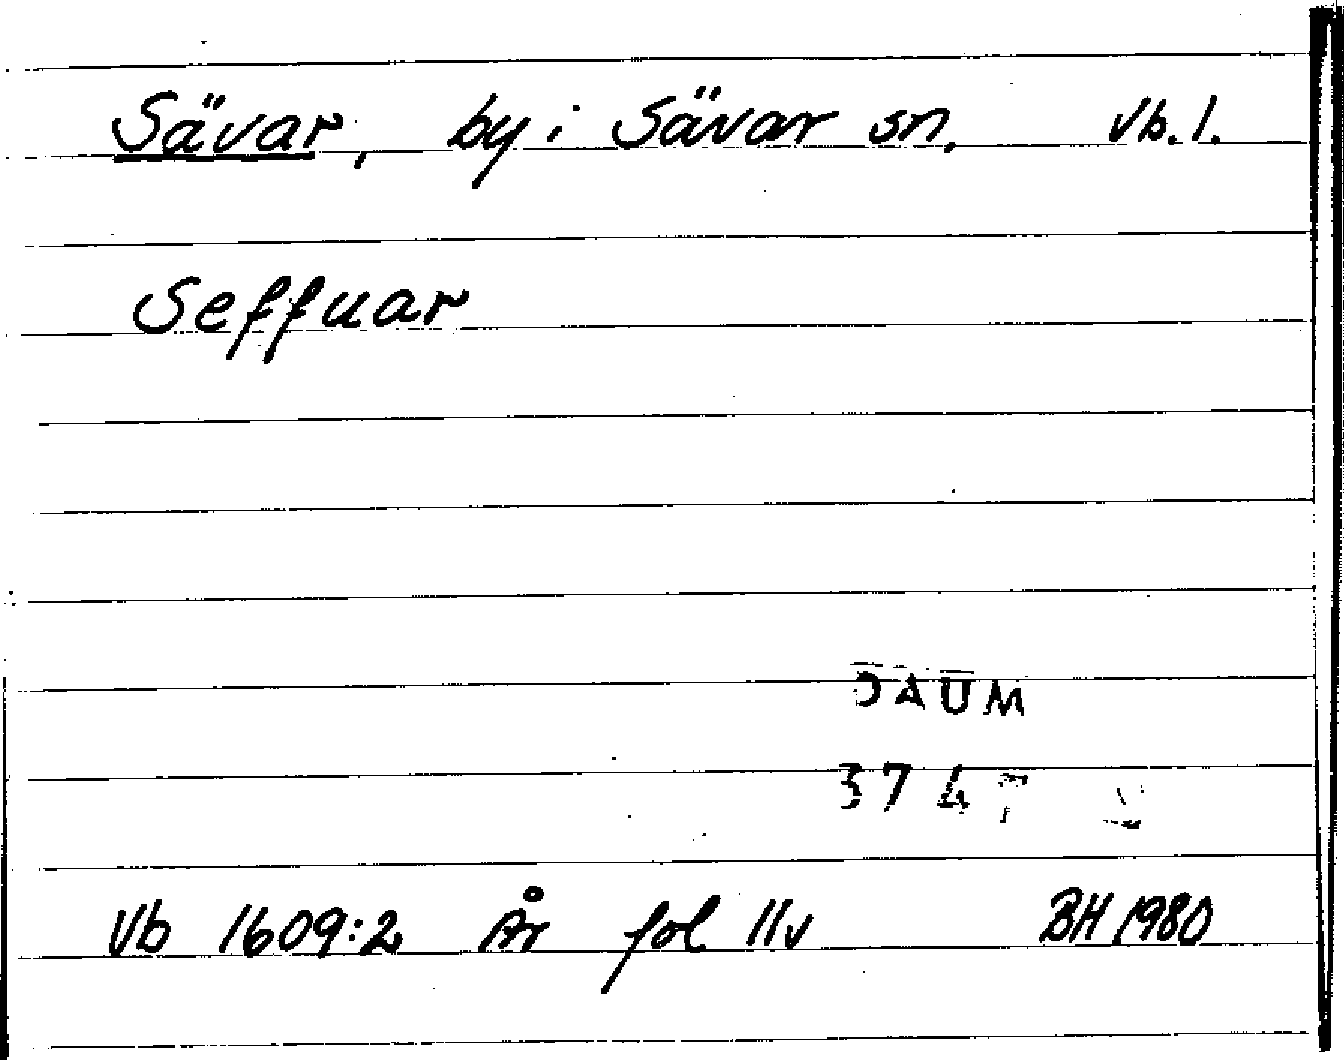 Sävar, by i Sävar sn. Vb. l.
Seffuar
DAUM
374
Vb 1609:2 År fol 11v BH 1980